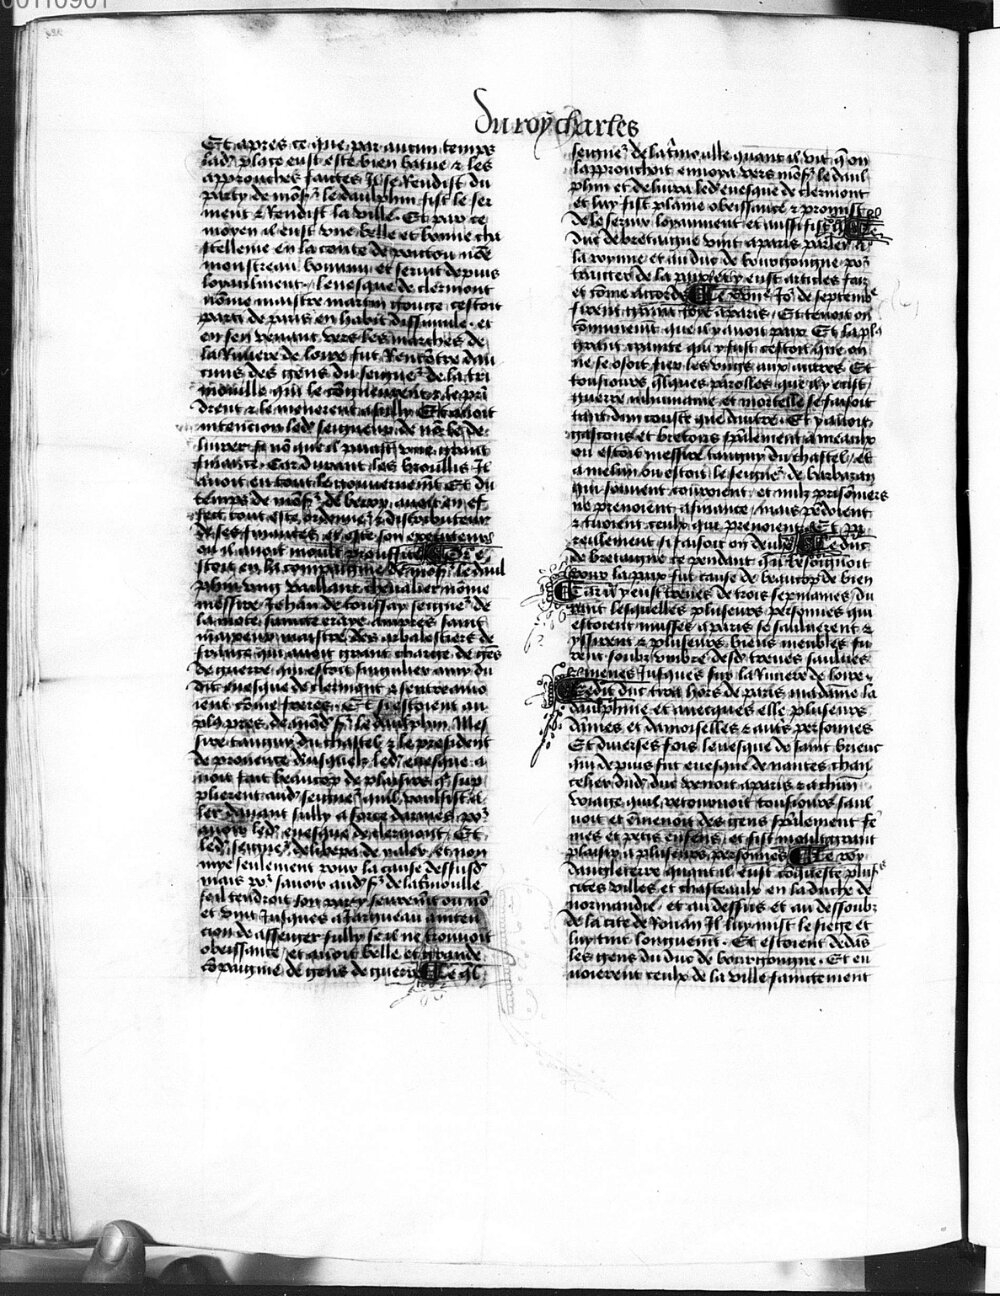 Du roy charles
Et apres ce que par aucun temps
lad place eust este bien batue & les
approuches faictes Il se Rendist du
party de mons le daulphin fist le ser
ment & Rendist la ville. Et par ce
moyen il eust une belle et bonne cha
stellenie en la conte de poictou
monstreau bonnin et servit depuis
loyaulment. levesque de clermont
nomme maistre martin gouge cestoit
parti de paris en habit dissimule. et
en sen venant vers les marches de
la Riviere de loire fut Rencontre dau
cuns des gens du seigneur de la tri
mouille qui le congneurent & le prin
drent & le menerent a sully Et avoit
intencion led seigneur de ne le de
livrer se non que il paiast une grant
finance. Car durant les brouillis Il
avoit eu tout le gouvernement Et du
temps de mons de berry avoit en ef
fect tout este ordonneur & distributeur
de ses finances et
ou il avoit moult prouffite
stoit en la compaignie de mons le daul
phin ung vaillant chevalier nomme
messire Jehan de toussay seigneur de
la mote saincte eraye empres saint
maixent maistre des arbalestiers de
france qui avoit grant charge de gens
de guerre qui estoit singulier amy du
dit evesque de clermont & sentreamo
ient comme freres. Et si estoient au
plus pres de mond s le daulphin Mes
sire tanguy du chastel & le president
de provence Ausquelz led evesque a
voit fait beaucop de plaisirs qui sup
plierent aud seigneur quil voulsist a
ler devant sully a force darmes pour
avoir led evesque de clermont. Et
led seigneur delibera de y aler, et non
mye seulement pour la cause dessusd
mais pour savoir aud s de la trimoulle
seil tendroit son party seurement ou non
et vint Jusques a Jargueau en inten
tion de assieger sully se il ne trouvoit
obeissance, et avoit belle et grande
compaignie de gens de guerre Le
seigneur de la trimoulle quant il vit quon
lapprouchoit envoya vers mons le daul
phin et delivra led evesque de clermont
et luy fist plaine obeissance & promist
de le servir loyaument et aussi fist Le
duc de bretaigne vint a paris parler a
la royne et au duc de bourgongne pour
traicter de la paix et y eust articles faiz
et comme accorde Le jour de septembre
firent grant joye a paris. Et tenoit on
communement que il y avoit paix Et la plus
grant crainte qui y fust cestoit que on
ne se osoit fier les ungs aux autres Et
tousiours quelques parolles que il y eust
guerre inhumaine et mortelle se faisoit
tant dun couste que dautre. Et y avoit
gascons et bretons specialement a meaux
ou estoit messire tanguy du chastel, et
a melun ou estoit le seigneur de barbazan
qui souvent couroient, et nulz prisonniers
ne prenoient a finance, mais pendoient
& tuoient ceulx que prenoient Et pa
reillement si faisoit on deulx Le duc
de bretaigne ce pendant quil besoignoit
pour la paix fut cause de beaucop de bien
Car il y eust treves de trois sepmaines du
rant lesquelles plusieurs personnes qui
estoient mussees a paris se sauluerent &
yssirent & plusieurs biens meubles fu
rent soubz umbre desd treves saulves
& menes Jusques sur la Riviere de loire.
Ledit duc tira hors de paris madame la
daulphine et avecques elle plusieurs
dames et damoiselles & autres personnes
Et diverses fois levesque de saint brieuc
qui depuis fut evesque de nantes chan
celier dud duc venoit a paris & a chascun
voiage quil retournoit tousiours saul
voit et emmenoit des gens specialement fe
mes et petis enfens, et fist moult grant
plaisir a plusieurs personnes Le roy
dangleterre quant il eust conqueste plusieurs
cites villes et chasteaulx en la duche de
normandie, et au dessus et au dessoubz
de la cite de Rouan Il luy mist le siege et
luy tint longuement. Et estoient dedens
les gens du duc de bourgongne. Et en
voierent ceulx de la ville sainctement